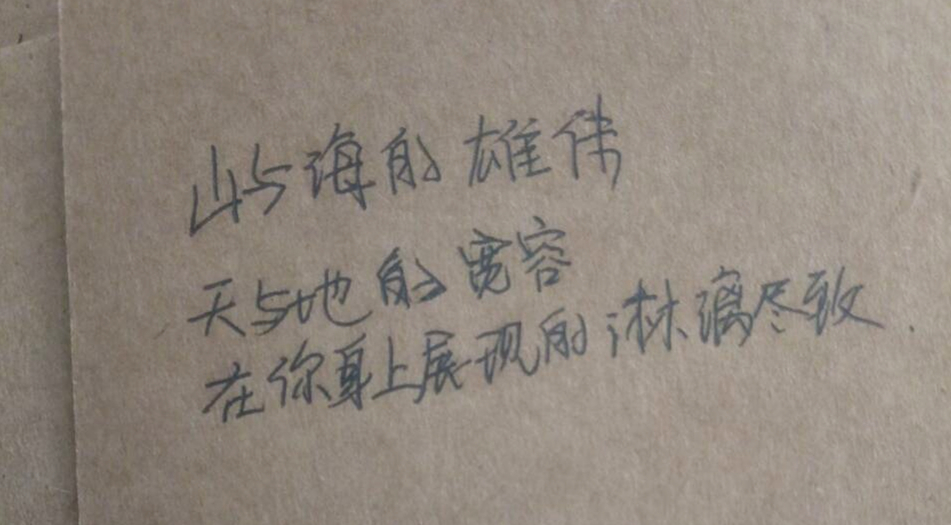 山与海的雄伟
天与地的宽容
在你身上展现的淋漓尽致.